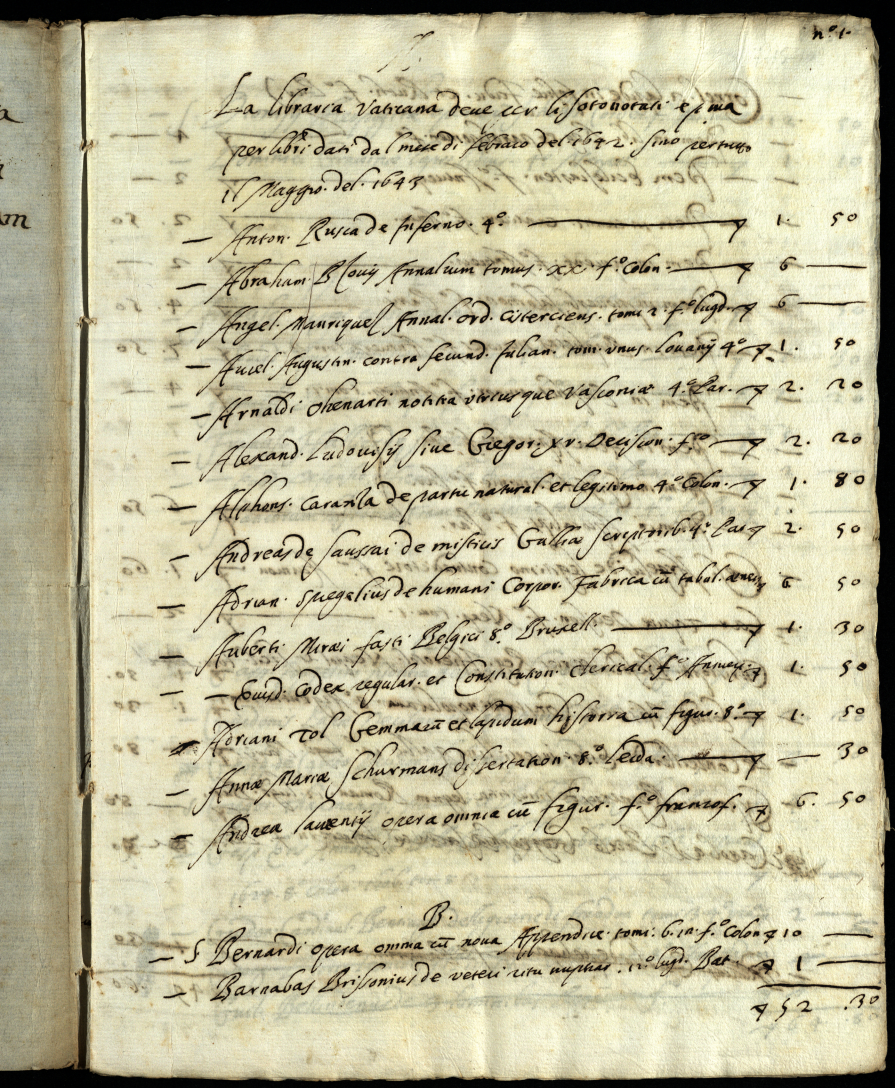 nº 1.
La libraria Vaticana deve
per libri dati dal mese di febraro del 1642. sino per tutto
il Maggio. del. 1643
— Anton. Rusca de Inferno. 4º. 1. 50
— Abraham. Blouij Annalium tomus. xx. fº. Colon. 6 —
— Angel. Manriquez Annal. ord. Cisterciens. tom. 2. fº. lugd. 6 —
— Aurel. Augustin. contra secund. Julian. tom. unus. Lovanij 4º 1. 50
— Arnaldi Ohenarti notitia utriusque Vasconiæ 4º. Par. 2. 20
— Alexand. Ludovisij sive Gregor. xv. Decision. fº 2. 20
— Alphons. Caranza de partu natural. et legitimo 4º Colon. 1. 80
— Andreas de Saussai de misticis Galliæ Scriptorib. 4º. Par. 2. 50
— Adrian. Spiegelius de humani Corpor. Fabrica cū tabul. æneis 6 50
— Auberti Miræi fasti Belgici 8º. Bruxell. 1. 30
— — Eiusd. Codex regular. et Constitution. Clerical. fº Antuer. 1. 50
— Adriani Tol Gemmarū et lapidum historia cū figur. 8º. 1. 50
— Annæ Mariæ Schurmans dissertation. 8º. Leida. — 30
— Andrea Laurentij opera omnia cū figur. fº. francof. 6. 50
B.
— S Bernardi opera omnia cū nova Appendice. tomi. 6. in. fº. Colon 10 —
— Barnabas Brissonius de veteri ritu nuptiar. 12º lugd. Bat 1 —
52 .30